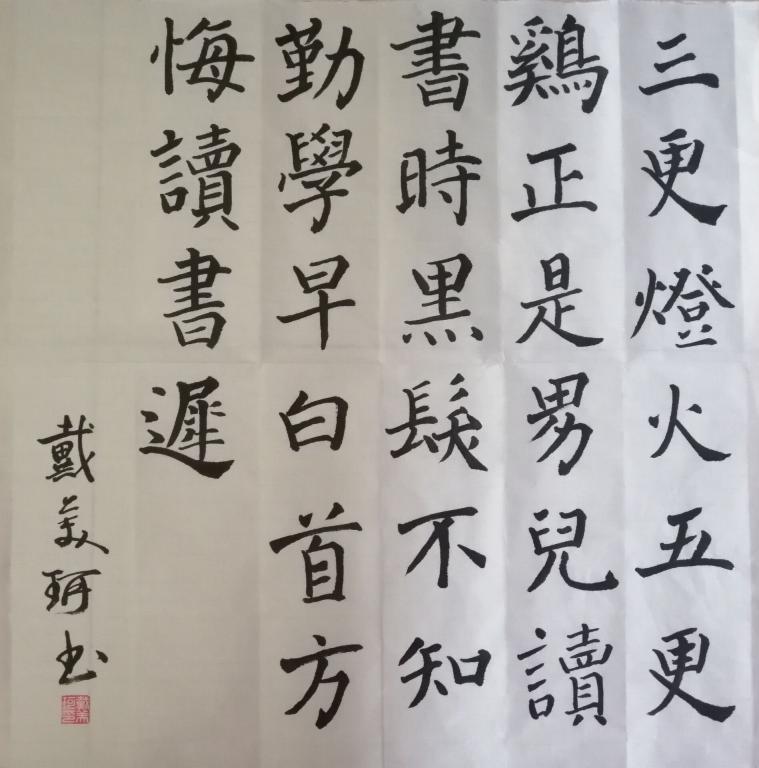 三更燈火五更
鷄正是男兒讀
書時黑髮不知
勤學早白首方
悔讀書遲
戴美珂书